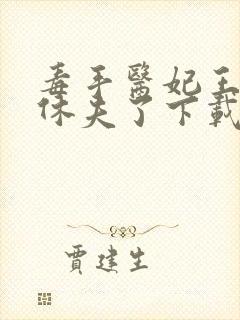 毒手醫妃王
休夫了下載
賈建生